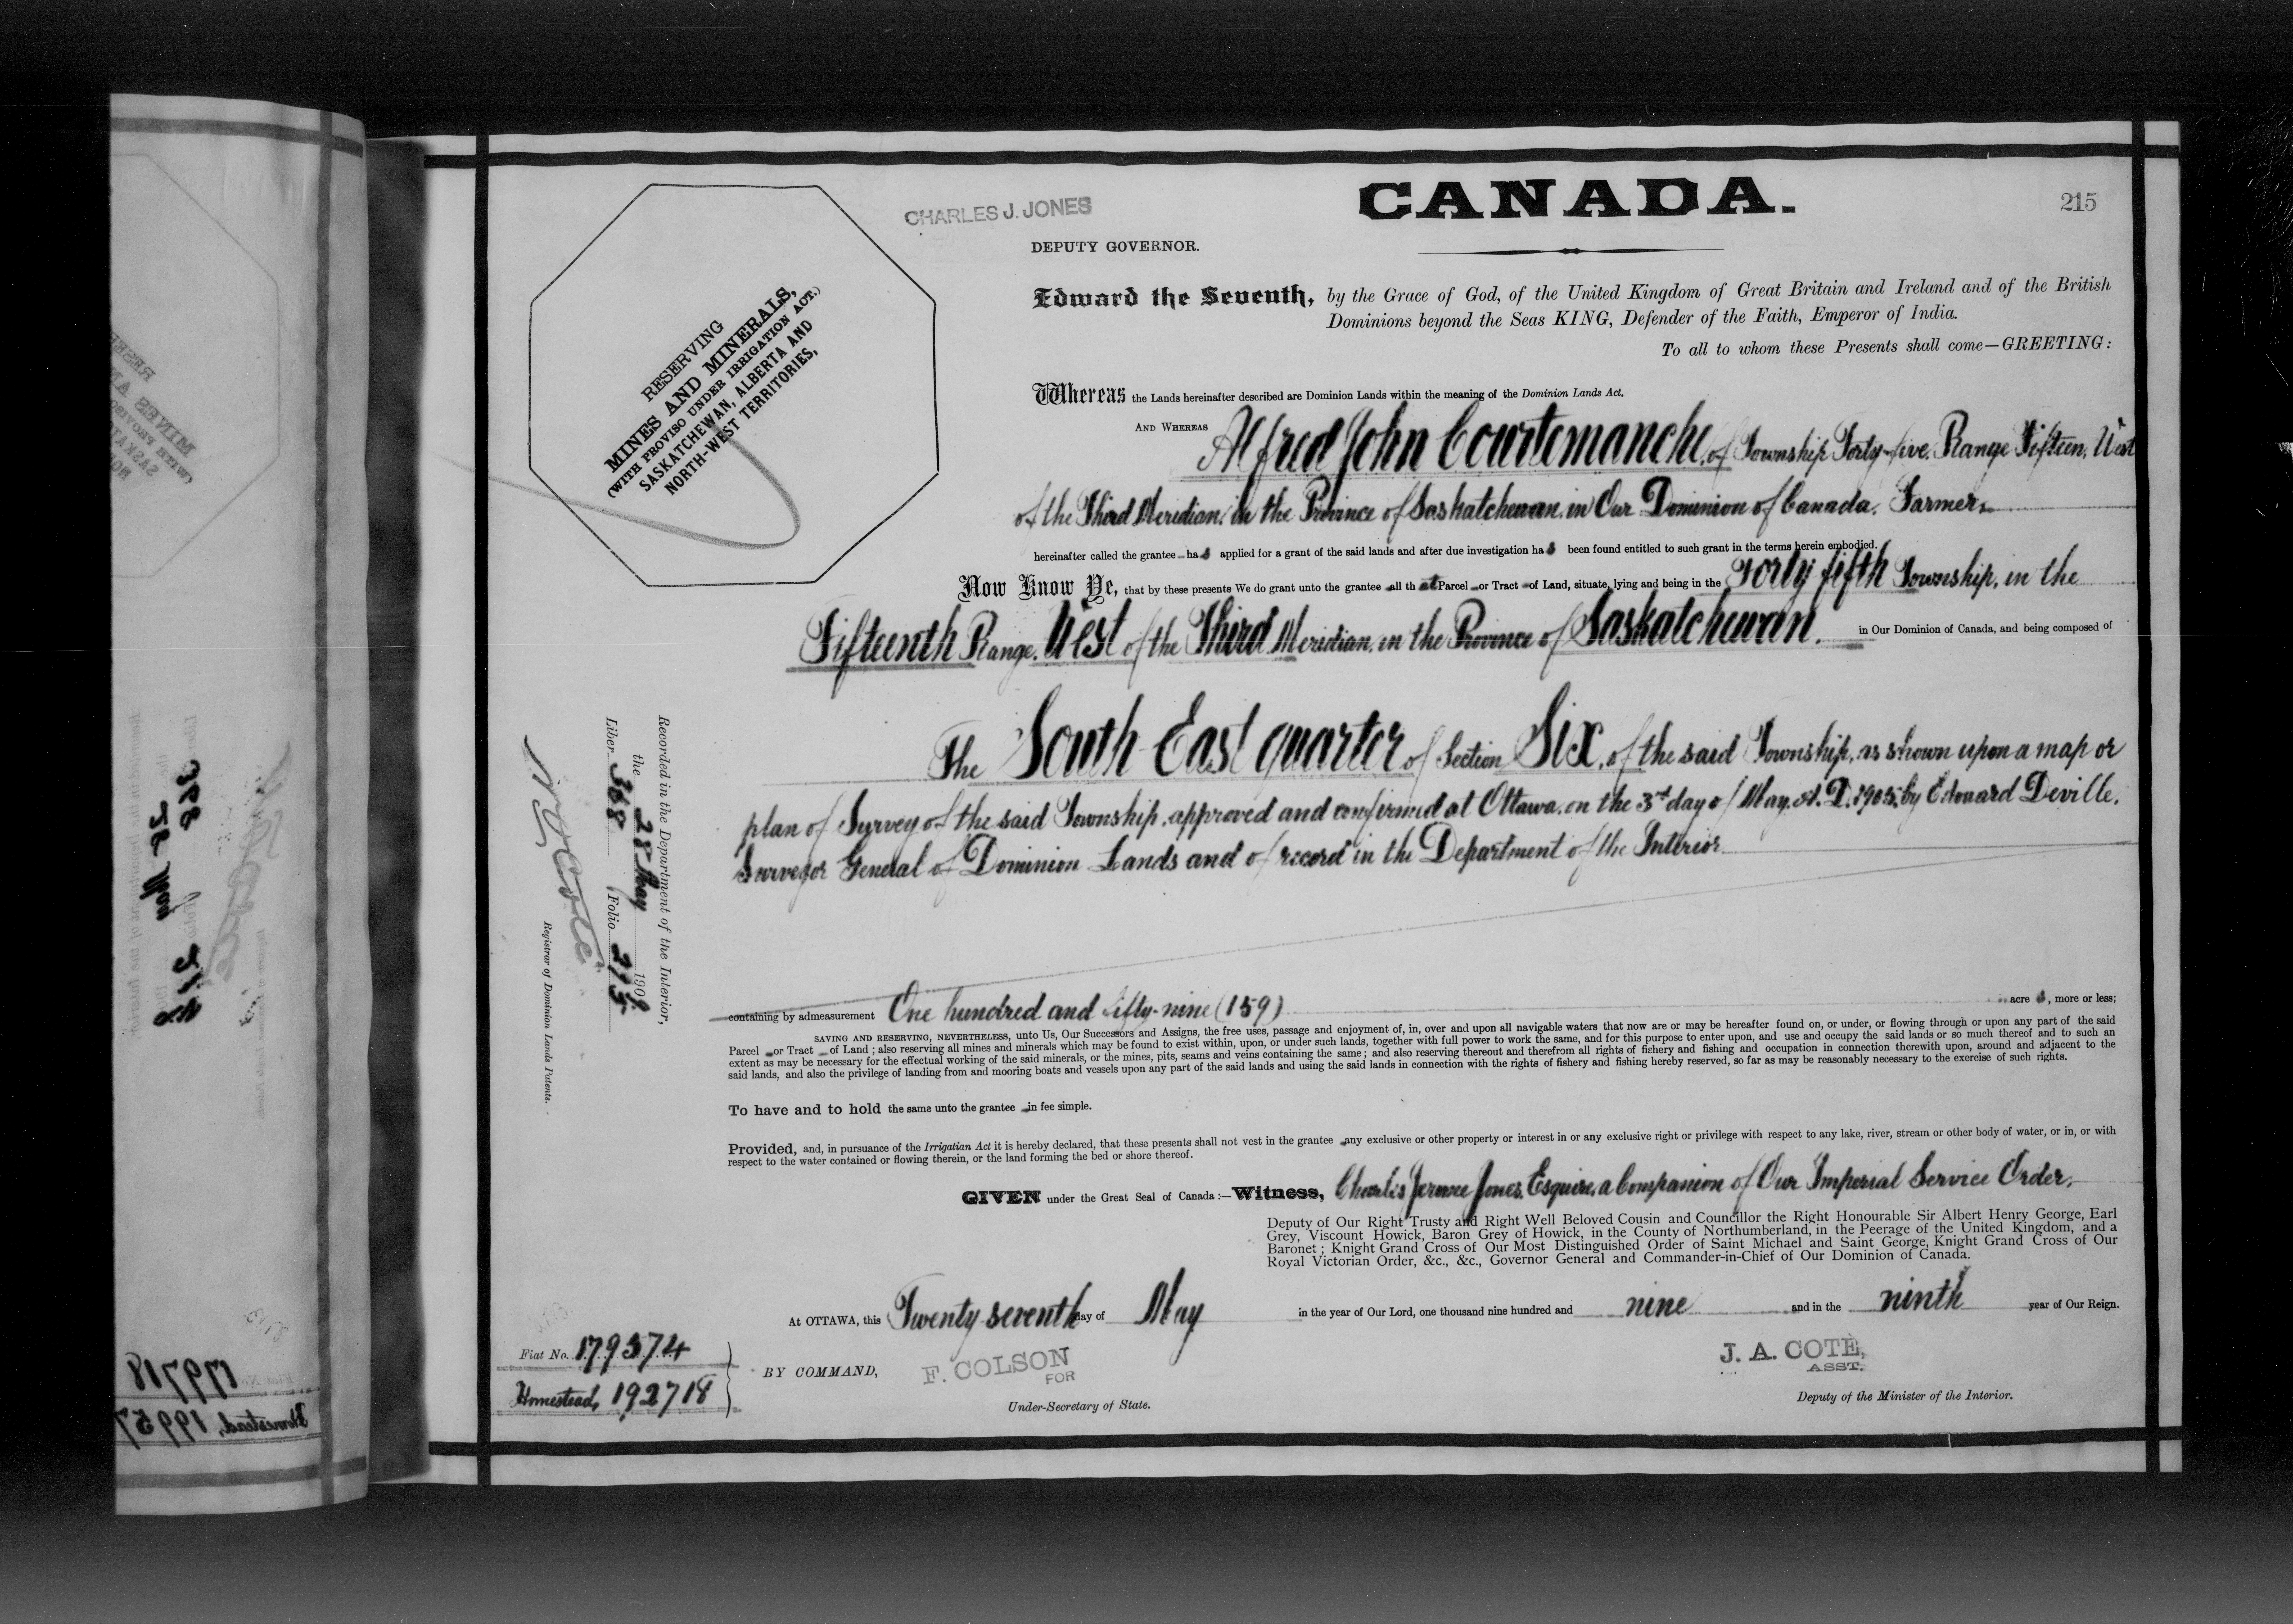 CHARLES J. JONES
CANADA.
215
DEPUTY GOVERNOR.
RESERVING
MINES AND MINERALS,
(WITH PROVISO UNDER IRRIGATION ACT.)
SASKATCHEWAN, ALBERTA AND
NORTH-WEST TERRITORIES,
Edward the Seventh, by the Grace of God, of the United Kingdom of Great Britain and Ireland and of the British
Dominions beyond the Seas KING, Defender of the Faith, Emperor of India.
To all to whom these Presents shall come—GREETING:
Whereas the Lands hereinafter described are Dominion Lands within the meaning of the Dominion Lands Act.
AND WHEREAS Alfred John Courtemanche, of Township Forty-five, Range Fifteen, West
of the Third Meridian, in the Province of Saskatchewan, in Our Dominion of Canada, Farmer,
hereinafter called the grantee has applied for a grant of the said lands and after due investigation has been found entitled to such grant in the terms herein embodied.
Now Know Ye, that by these presents We do grant unto the grantee all that Parcel or Tract of Land, situate, lying and being in the Forty fifth Township, in the
Fifteenth Range, West of the Third Meridian, in the Province of Saskatchewan, in Our Dominion of Canada, and being composed of
The South East quarter of Section Six, of the said Township, as shown upon a map or
plan of Survey of the said Township, approved and confirmed at Ottawa, on the 3rd day of May, A.D. 1905, by Edouard Deville,
Surveyor General of Dominion Lands and of record in the Department of the Interior
containing by admeasurement One hundred and fifty-nine (159) acres, more or less;
SAVING AND RESERVING, NEVERTHELESS, unto Us, Our Successors and Assigns, the free uses, passage and enjoyment of, in, over and upon all navigable waters that now are or may be hereafter found on, or under, or flowing through or upon any part of the said
Parcel or Tract of Land; also reserving all mines and minerals which may be found to exist within, upon, or under such lands, together with full power to work the same, and for this purpose to enter upon, and use and occupy the said lands or so much thereof and to such an
extent as may be necessary for the effectual working of the said minerals, or the mines, pits, seams and veins containing the same; and also reserving thereout and therefrom all rights of fishery and fishing and occupation in connection therewith upon, around and adjacent to the
said lands, and also the privilege of landing from and mooring boats and vessels upon any part of the said lands and using the said lands in connection with the rights of fishery and fishing hereby reserved, so far as may be reasonably necessary to the exercise of such rights.
To have and to hold the same unto the grantee in fee simple.
Provided, and, in pursuance of the Irrigation Act it is hereby declared, that these presents shall not vest in the grantee any exclusive or other property or interest in or any exclusive right or privilege with respect to any lake, river, stream or other body of water, or in, or with
respect to the water contained or flowing therein, or the land forming the bed or shore thereof.
GIVEN under the Great Seal of Canada:—Witness, Charles Jerome Jones, Esquire, a Companion of Our Imperial Service Order,
Deputy of Our Right Trusty and Right Well Beloved Cousin and Councillor the Right Honourable Sir Albert Henry George, Earl
Grey, Viscount Howick, Baron Grey of Howick, in the County of Northumberland, in the Peerage of the United Kingdom, and a
Baronet; Knight Grand Cross of Our Most Distinguished Order of Saint Michael and Saint George, Knight Grand Cross of Our
Royal Victorian Order, &c., &c., Governor General and Commander-in-Chief of Our Dominion of Canada.
At OTTAWA, this Twenty seventh day of May in the year of Our Lord, one thousand nine hundred and nine and in the ninth year of Our Reign.
BY COMMAND,
F. COLSON
FOR
Under-Secretary of State.
J. A. COTÉ,
ASST.
Deputy of the Minister of the Interior.
Fiat No. 179374
Homestead, 192718
Recorded in the Department of the Interior,
the 28 May 1909
Liber 368 Folio 215
N O Coté
Registrar of Dominion Lands Patents.
179718
Homestead, 19957